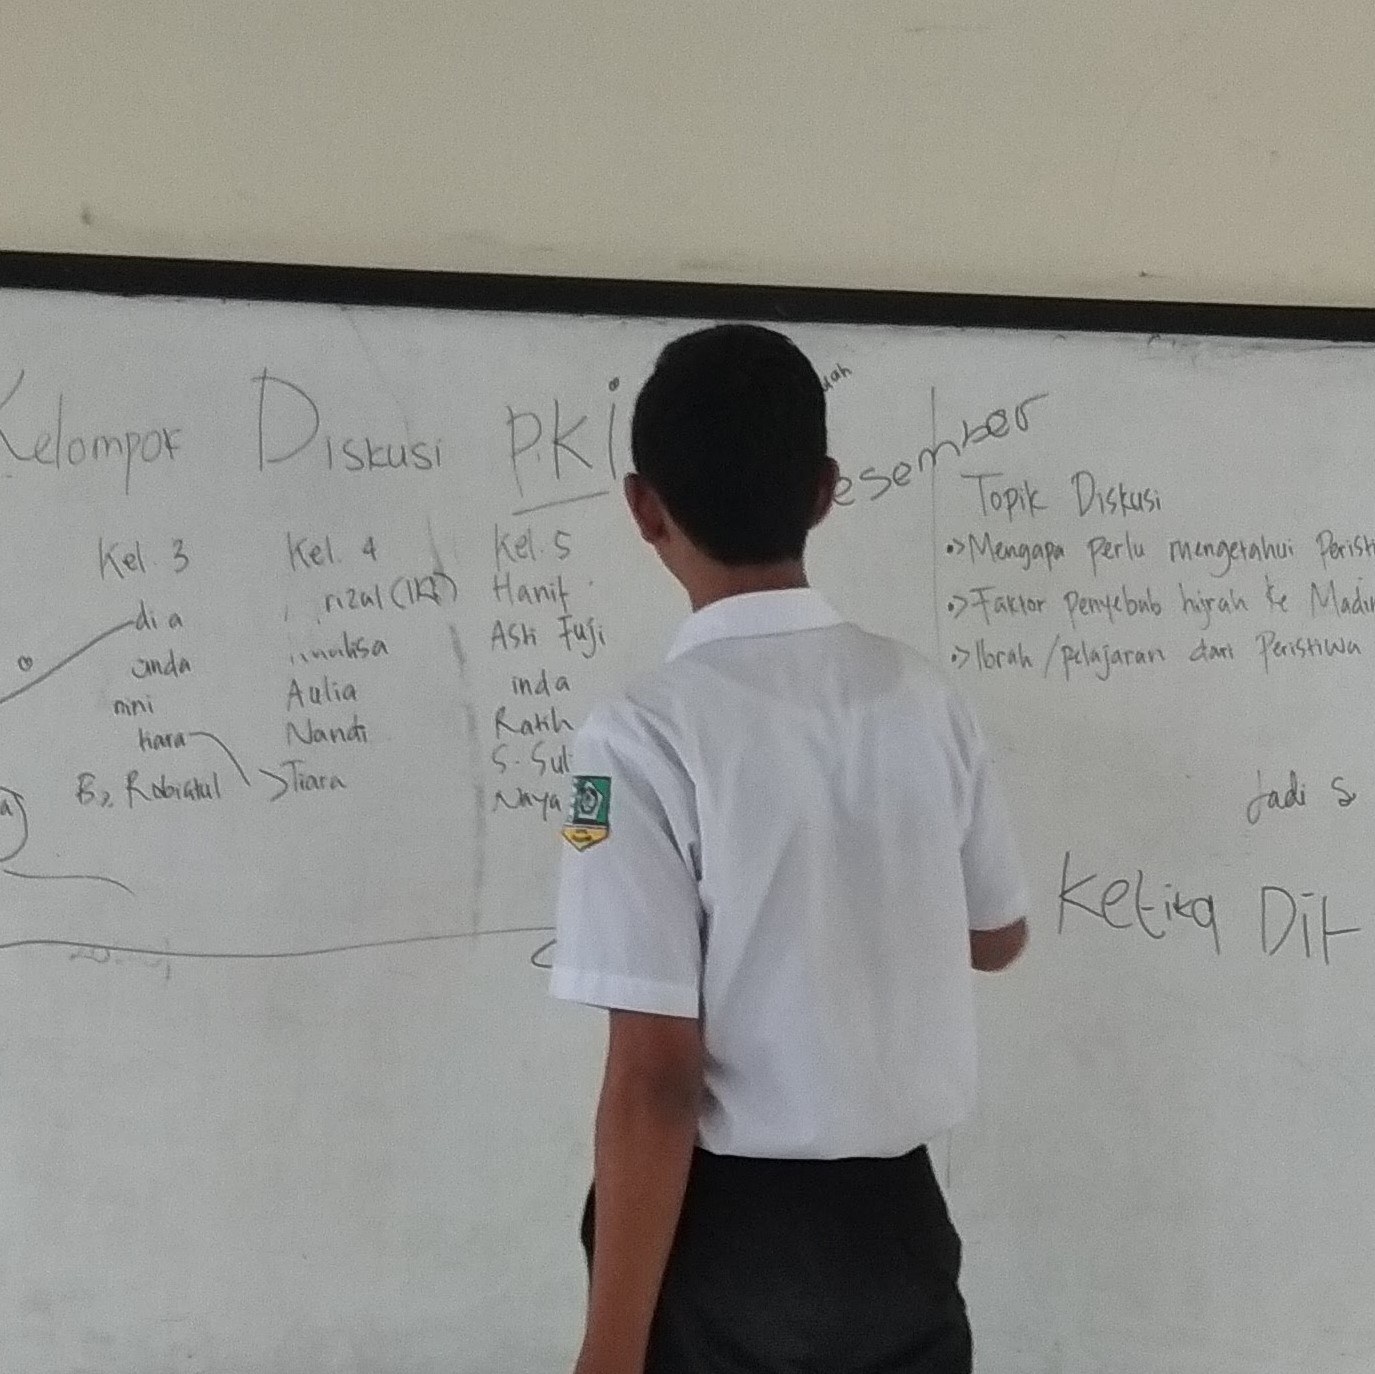 Kelompok Diskusi PKi
esember
Kel. 3
dia
anda
nini
tiara
B2 Robiatul
Kel. 4
rizal (IKA)
Aulia
Nandi
Tiara
Kel. 5
Hanif
Asti Fuji
inda
Ratih
S. Sul
Naya
Topik Diskusi
•> Mengapa perlu mengetahui Perist
•> Faktor penyebab hijrah ke Madi
•> Ibrah / pelajaran dari Peristiwa
Jadi S
Ketika Dit